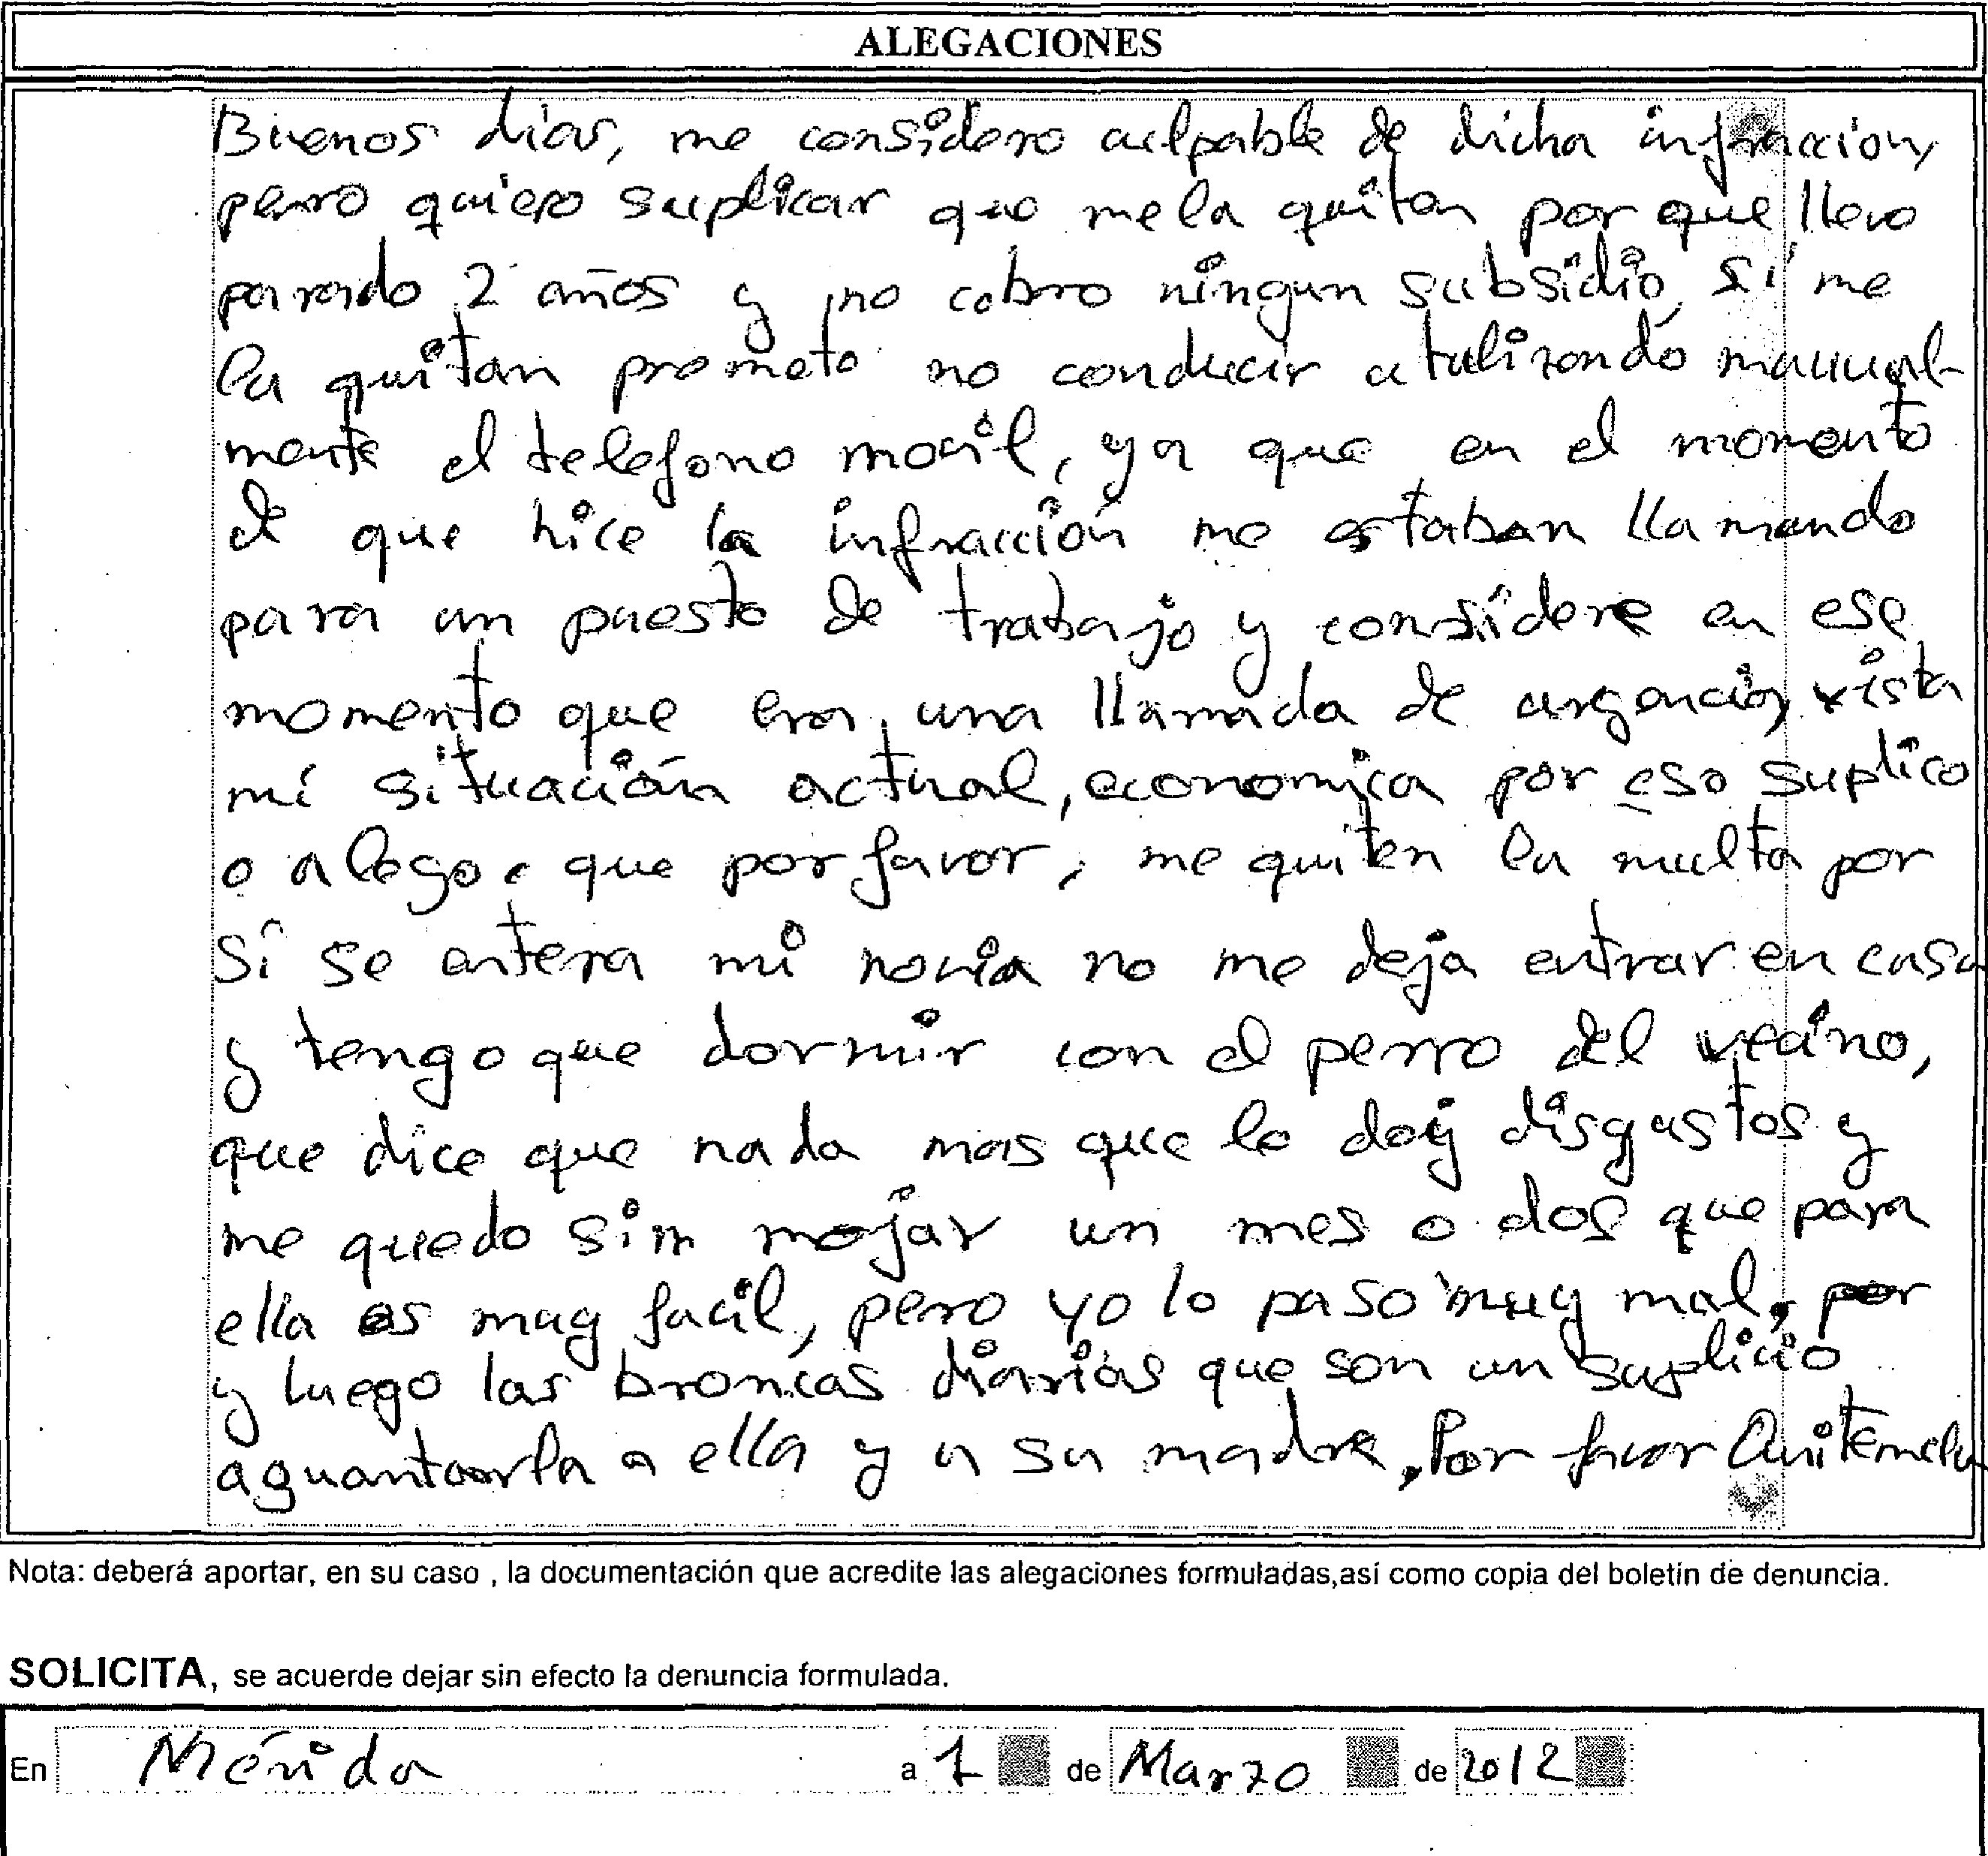 ALEGACIONES
Buenos dias, me considero culpable de dicha infracción,
pero quiero suplicar que me la quiten por que llevo
parado 2 años y no cobro ningun subsidio, si me
la quitan prometo no conducir utulizando manual-
mente el telefono movil, ya que en el momento
de que hice la infracción me estaban llamando
para un puesto de trabajo y considere en ese
momento que era una llamada de urgencia, vista
mi situación actual, economica por eso suplico
o alego que por favor, me quiten la multa por
si se entera mi novia no me deja entrar en casa
y tengo que dormir con el perro del vecino,
que dice que nada mas que le doy disgustos y
me quedo sin mojar un mes o dos que para
ella es muy facil, pero yo lo paso muy mal, por
y luego las broncas diarias que son un suplicio
aguantarla a ella y a su madre, Por favor Quitemela
Nota: deberá aportar, en su caso , la documentación que acredite las alegaciones formuladas,así como copia del boletín de denuncia.
SOLICITA, se acuerde dejar sin efecto la denuncia formulada.
En Mérida a 1 de Marzo de 2012